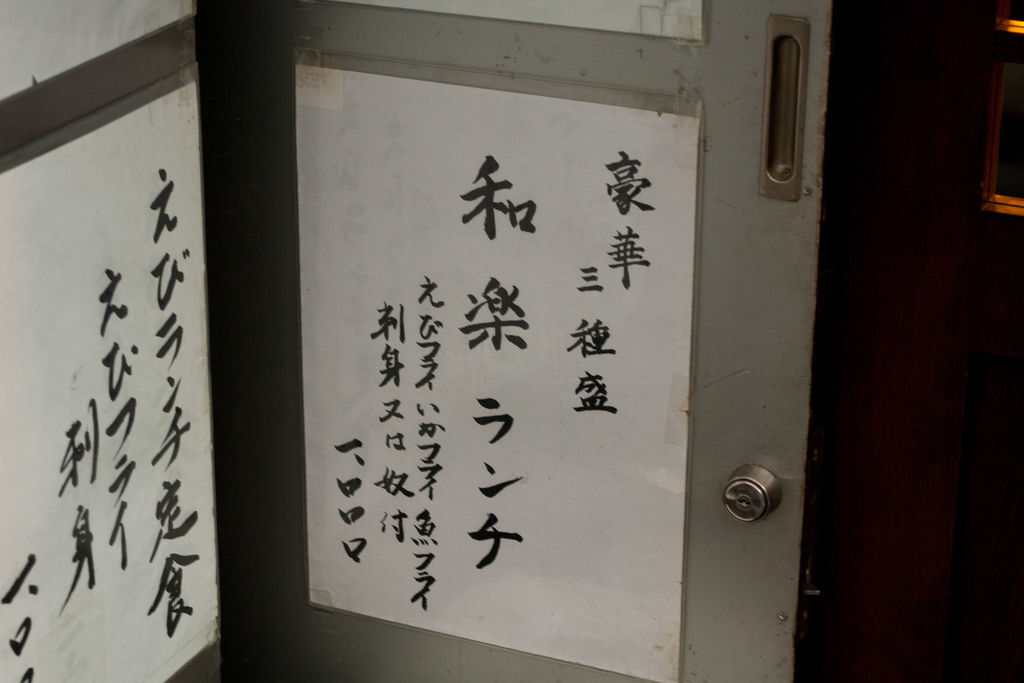 豪華
三種盛
和楽ランチ
えびフライいかフライ魚フライ
刺身又は奴付
一、〇〇〇
えびランチ定食
えびフライ
刺身
一、〇